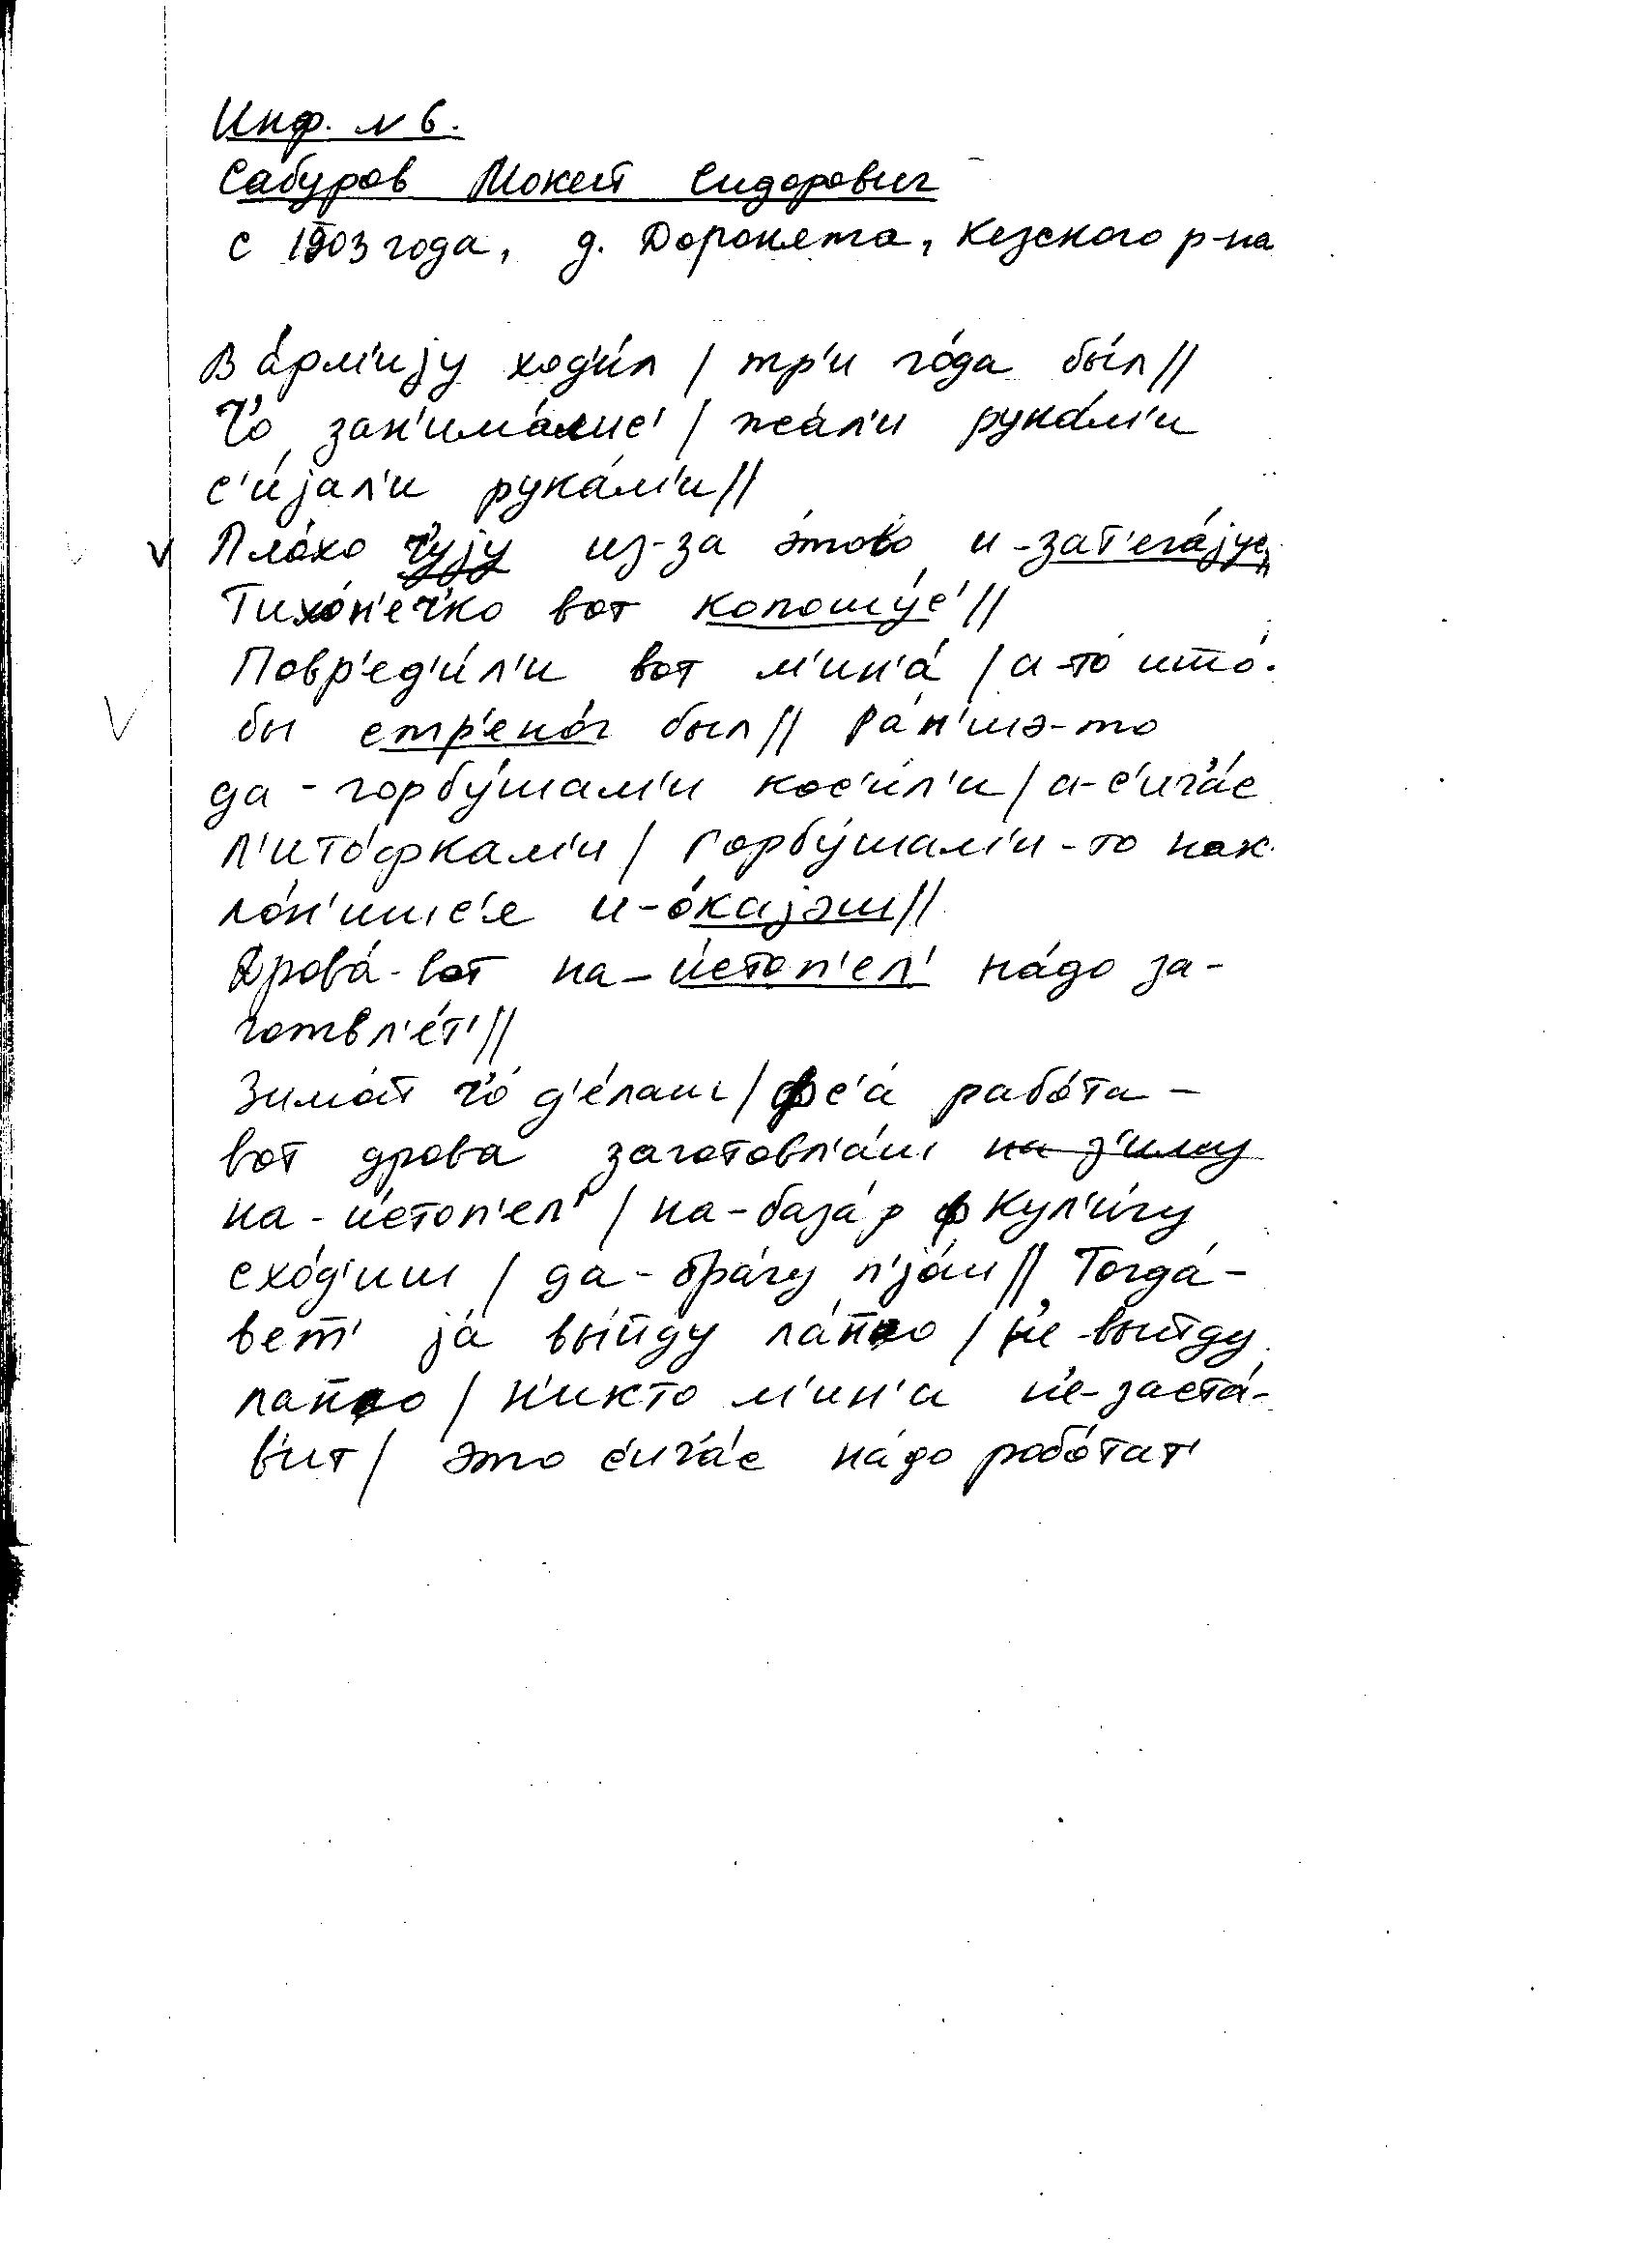 Инф. N 6.
Сабуров Мокей Сидорович
с 1903 года, д. Доронята, Кезского р-на
В а́рм'иjу ход'и́л / тр'и го́да бы́л //
Ч'о́ зан'има́лис' / жа́л'и рука́м'и
с'и́jал'и рука́м'и //
Пло́хо ч'у́jу из-за э́тово и-зат'ега́jус'
Тихо́н'еч'ко вот копошу́с' //
Повр'ед'и́л'и вот м'ин'а́ / а-то што́-
бы стр'ено́г был // Ра́н'шэ-то
да-горбу́шам'и кос'и́л'и / а-с'ич'а́с
л'ито́фкам'и / горбу́шам'и-то нак-
ло́н'ишс'е и-о́каjэш //
Дрова́-вот на-и́стоп'ел' на́до за-
готвл'е́т' //
Зимо́й ч'о́ д'е́лаш / фс'а́ рабо́та -
вот дрова заготовл'а́ш на з'иму
на-и́стоп'ел' / на-база́р ф Кул'и́гу
схо́д'иш / да-бра́гу п'jо́ш // Тогда́-
вет' jа́ вы́йду ла́йно / н'е-выйду
лайно / н'икто м'ин'а н'е-заста́-
в'ит / это с'ич'а́с на́до робо́тат'